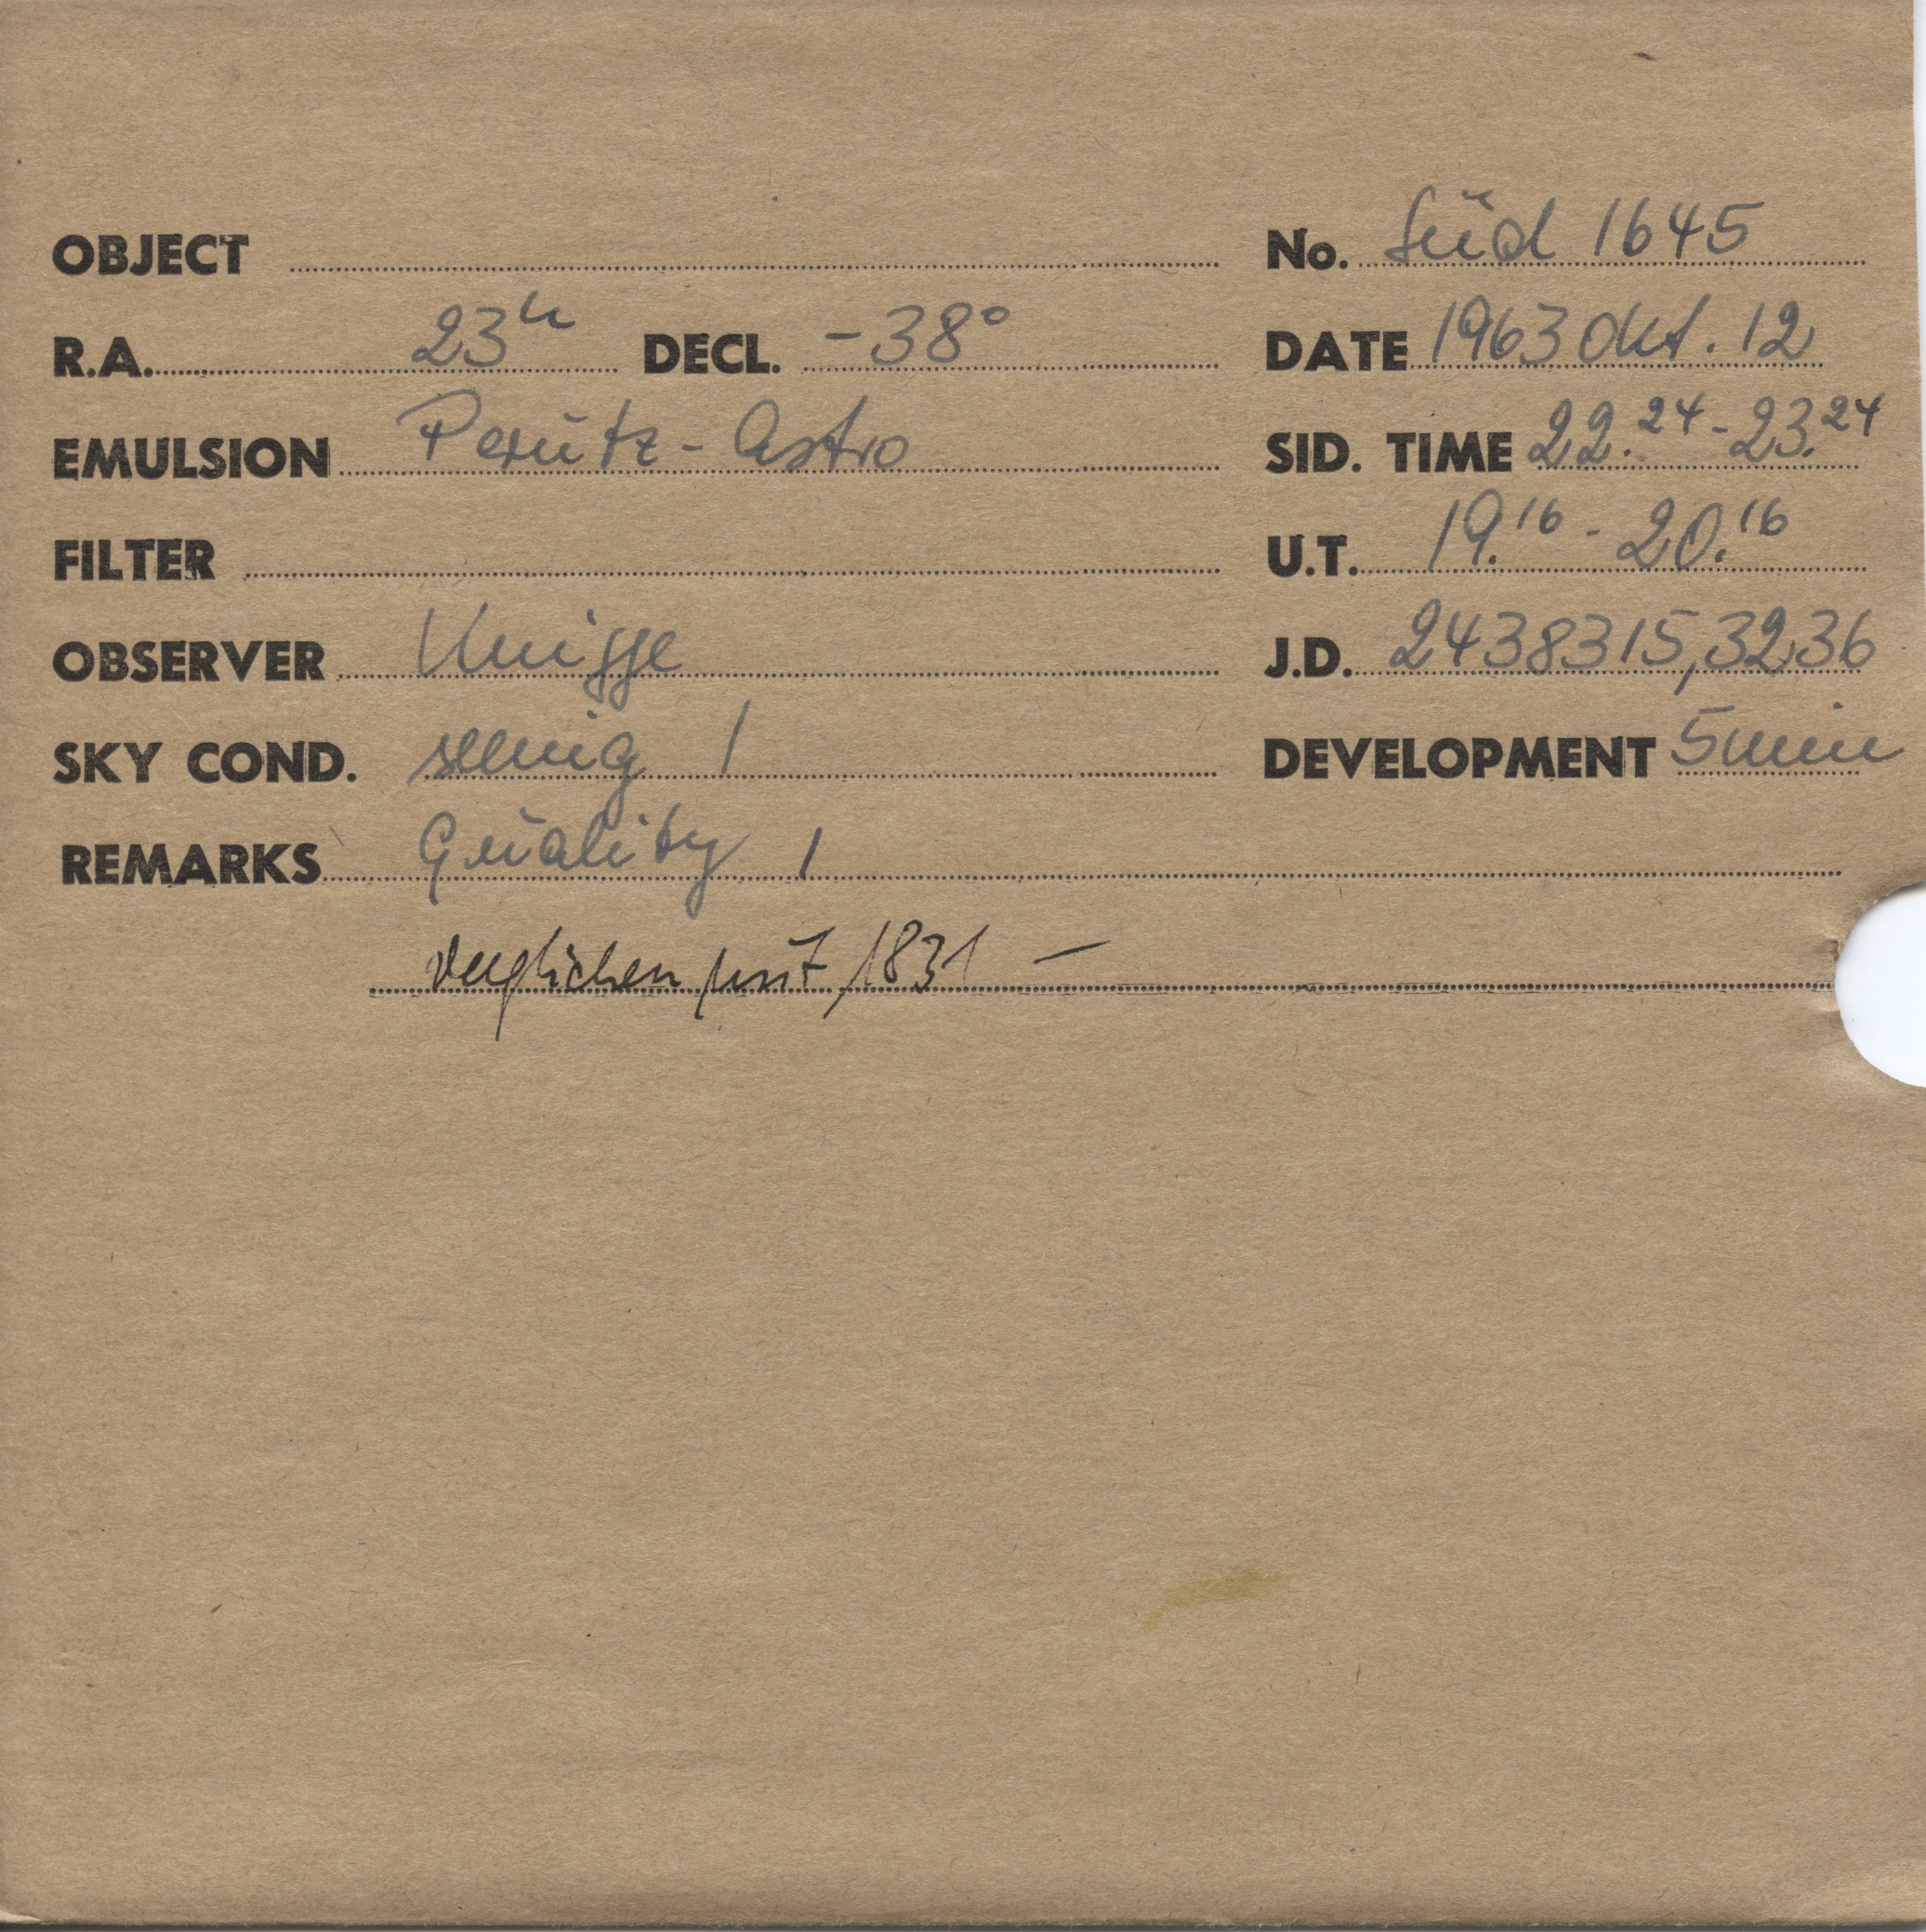 OBJECT No. Süd 1645
R.A. 23h DECL. -38° DATE 1963 Okt. 12
EMULSION Perutz-Astro SID. TIME 22.24 - 23.24
FILTER U.T. 19.16 - 20.16
OBSERVER Knigge J.D. 2438315,3236
SKY COND. seeing 1 DEVELOPMENT 5 min
REMARKS Quality 1
verglichen mit 1831 —